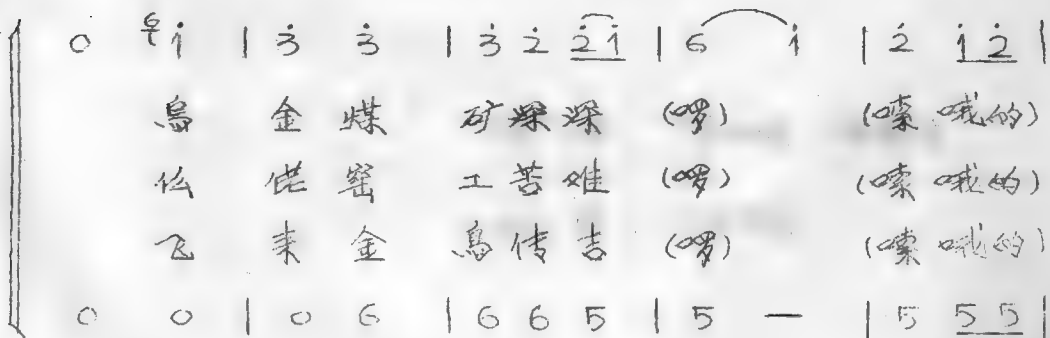 0 6 i | 3 3 | 3 2 2 1 | 6 i | 2 i 2 |
鸟 金 煤 矿 深 深 (啰) (嗦 哦 的)
仫 佬 窑 工 苦 难 (啰) (嗦 哦 的)
飞 来 金 鸟 传 吉 (啰) (嗦 哦 的)
0 0 | 0 6 | 6 6 5 | 5 — | 5 5 5 |